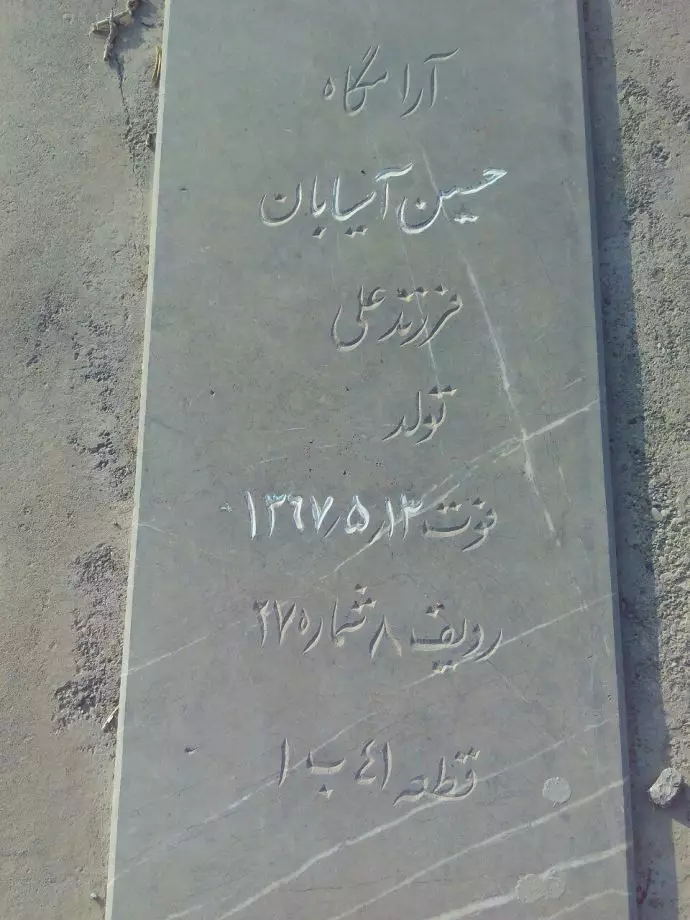 آرامگاه
حسین آسیابان
فرزند علی
تولد
فوت ۱۳٫۵٫۱۳۶۷
ردیف ۸ شماره ۲۷
قطعه ۴۱ ب ۱